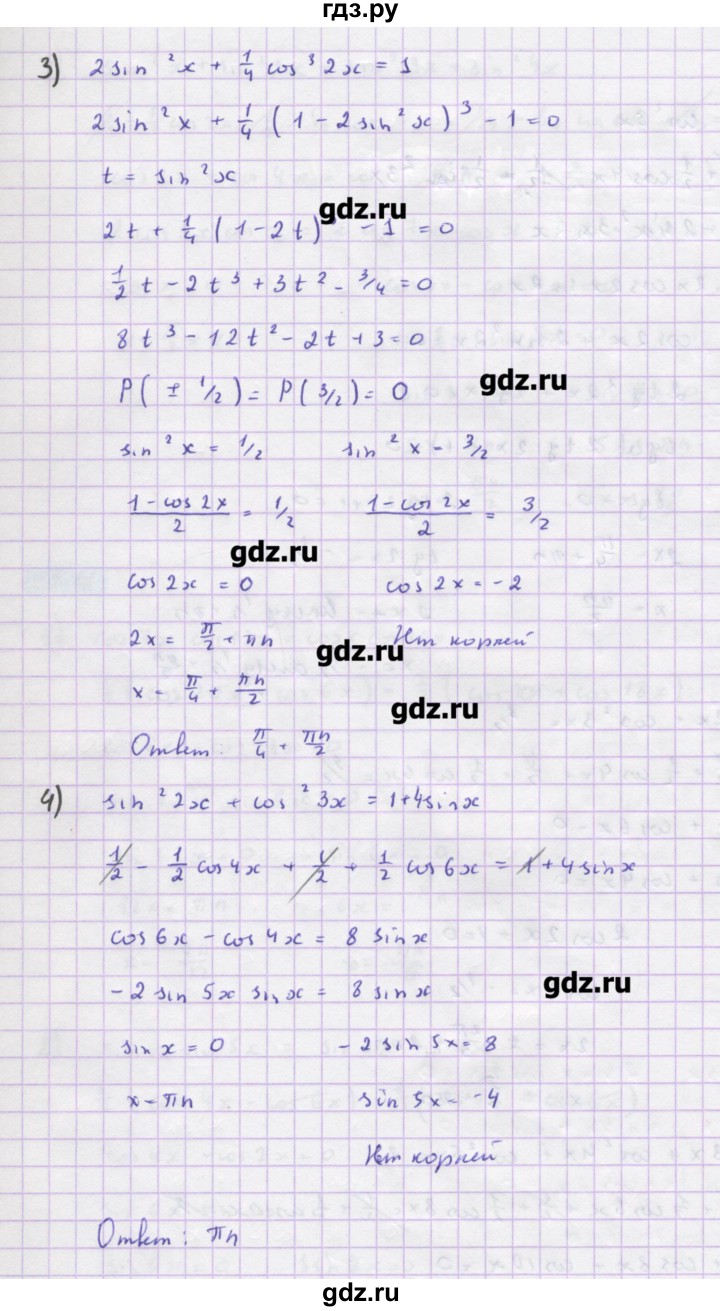 гдз.ру
3) 2 sin ² x + 1/4 cos ³ 2x = 1
2 sin ² x + 1/4 (1 - 2 sin ² x) ³ - 1 = 0
t = sin ² x
gdz.ru
2t + 1/4 (1 - 2t) - 1 = 0
1/2 t - 2t ³ + 3t ² - 3/4 = 0
8t ³ - 12t ² - 2t + 3 = 0
gdz.ru
P( ± 1/2 ) = P( 3/2 ) = 0
sin ² x = 1/2 sin ² x - 3/2
(1 - cos 2x)/2 = 1/2 (1 - cos 2x)/2 = 3/2
gdz.ru
cos 2x = 0 cos 2x = - 2
2x = π/2 + πn Нет корней
gdz.ru
x - π/4 + πn/2
gdz.ru
Ответ: π/4 + πn/2
4) sin ² 2x + cos ² 3x = 1 + 4 sin x
1/2 - 1/2 cos 4x + 1/2 + 1/2 cos 6x = 1 + 4 sin x
cos 6x - cos 4x = 8 sin x
- 2 sin 5x sin x = 8 sin x
gdz.ru
sin x = 0 - 2 sin 5x = 8
x - πn sin 5x - -4
Нет корней
Ответ: πn
gdz.ru